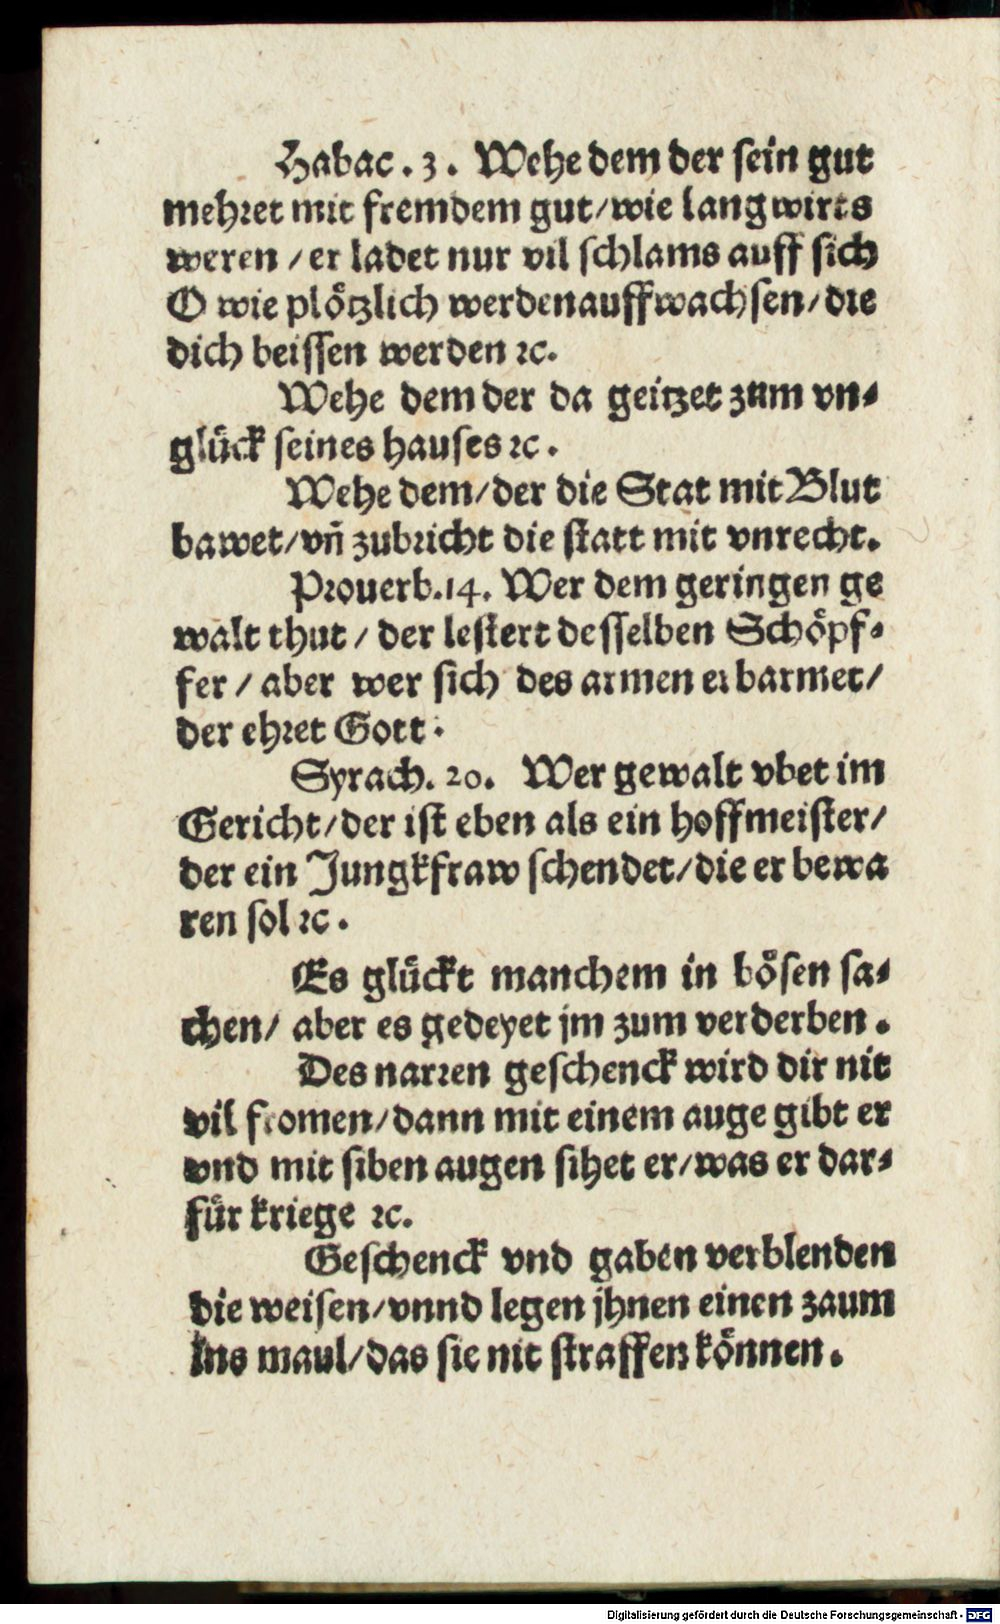 Habac. 3. Wehe dem der sein gut
mehret mit fremdem gut/wie lang wirts
weren/er ladet nur vil schlams auff sich
O wie plötzlich werden auffwachsen/die
dich beissen werden ꝛc.
Wehe dem der da geitzet zum vn⸗
glück seines hauses ꝛc.
Wehe dem/der die Stat mit Blut
bawet/vñ zubricht die statt mit vnrecht.
Prouerb.14. Wer dem geringen ge
walt thut/der lestert desselben Schöpf⸗
fer/aber wer sich des armen erbarmet/
der ehret Gott.
Syrach. 20. Wer gewalt vbet im
Gericht/der ist eben als ein hoffmeister/
der ein Jungkfraw schendet/die er bewa
ren sol ꝛc.
Es glückt manchem in bösen sa⸗
chen/ aber es gedeyet jm zum verderben.
Des narren geschenck wird dir nit
vil fromen/dann mit einem auge gibt er
vnd mit siben augen sihet er/was er dar⸗
für kriege ꝛc.
Geschenck vnd gaben verblenden
die weisen/vnnd legen jhnen einen zaum
ins maul/das sie nit straffen können.
Digitalisierung gefördert durch die Deutsche Forschungsgemeinschaft - DFG